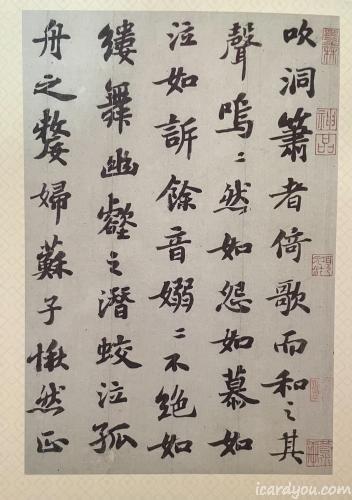 吹洞簫者倚歌而和之其
聲嗚〻然如怨如慕如
泣如訴餘音嫋〻不絕如
縷舞幽壑之潛蛟泣孤
舟之嫠婦蘇子愀然正
神品
icardyou.com